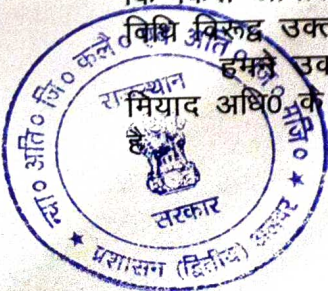 विधि विरूद्ध उक्त
हमने उक
मियाद अधि0 के
है
न्या० अति० जि० कलै० एवं अति० जि० मजि०
राजस्थान
सरकार
★ प्रशासन (द्वितीय) अलवर ★